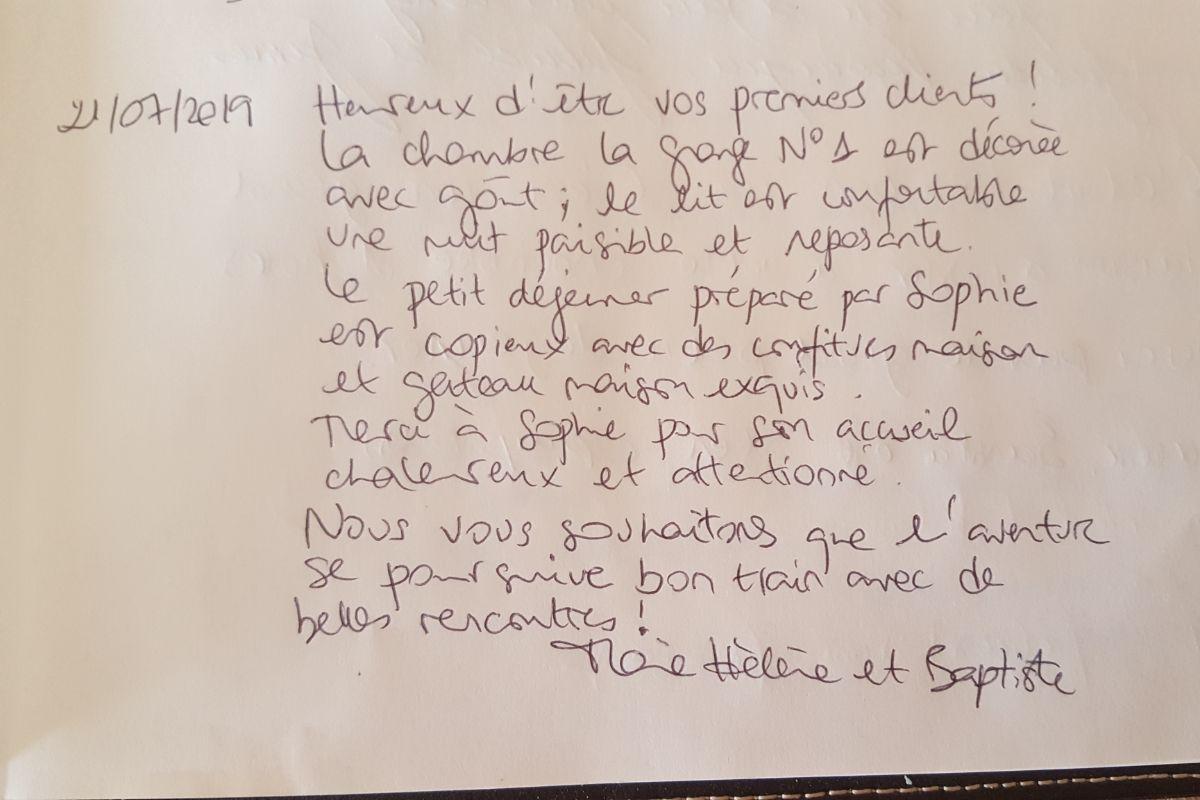 21/07/2019 Heureux d'être vos premiers clients !
La chambre la grange N°1 est décorée
avec goût ; le lit est confortable
une nuit paisible et reposante.
Le petit déjeuner préparé par Sophie
est copieux avec des confitures maison
et gateau maison exquis.
Merci à Sophie pour son accueil
chaleureux et attentionné.
Nous vous souhaitons que l'aventure
se poursuive bon train avec de
belles rencontres !
Marie Hélène et Baptiste